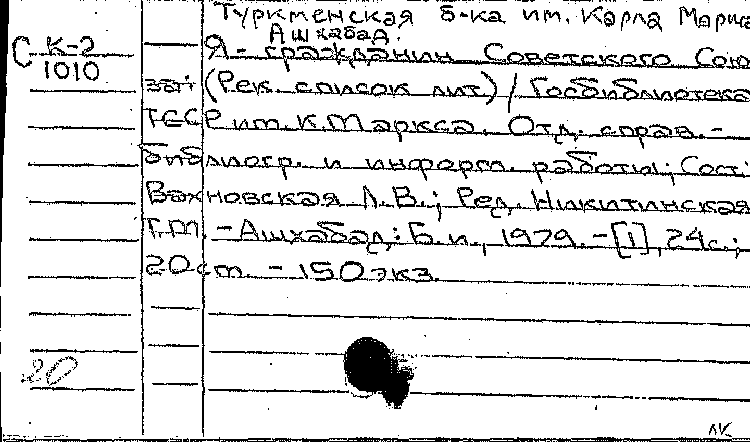 Туркменская б-ка им. Карла Маркса
Ашхабад.
С К-2
1010
Я - гражданин Советского Сою
за: (Рек. список лит.) / Госбиблиотека
ТССР им. К. Маркса. Отд. справ.-
библиогр. и информ. работы; Сост.:
Вахновская Л.В.; Ред. Никитинская
Г.М. - Ашхабад: Б.и., 1979. - [1], 24с.;
20см. - 150экз.
20
ЛК